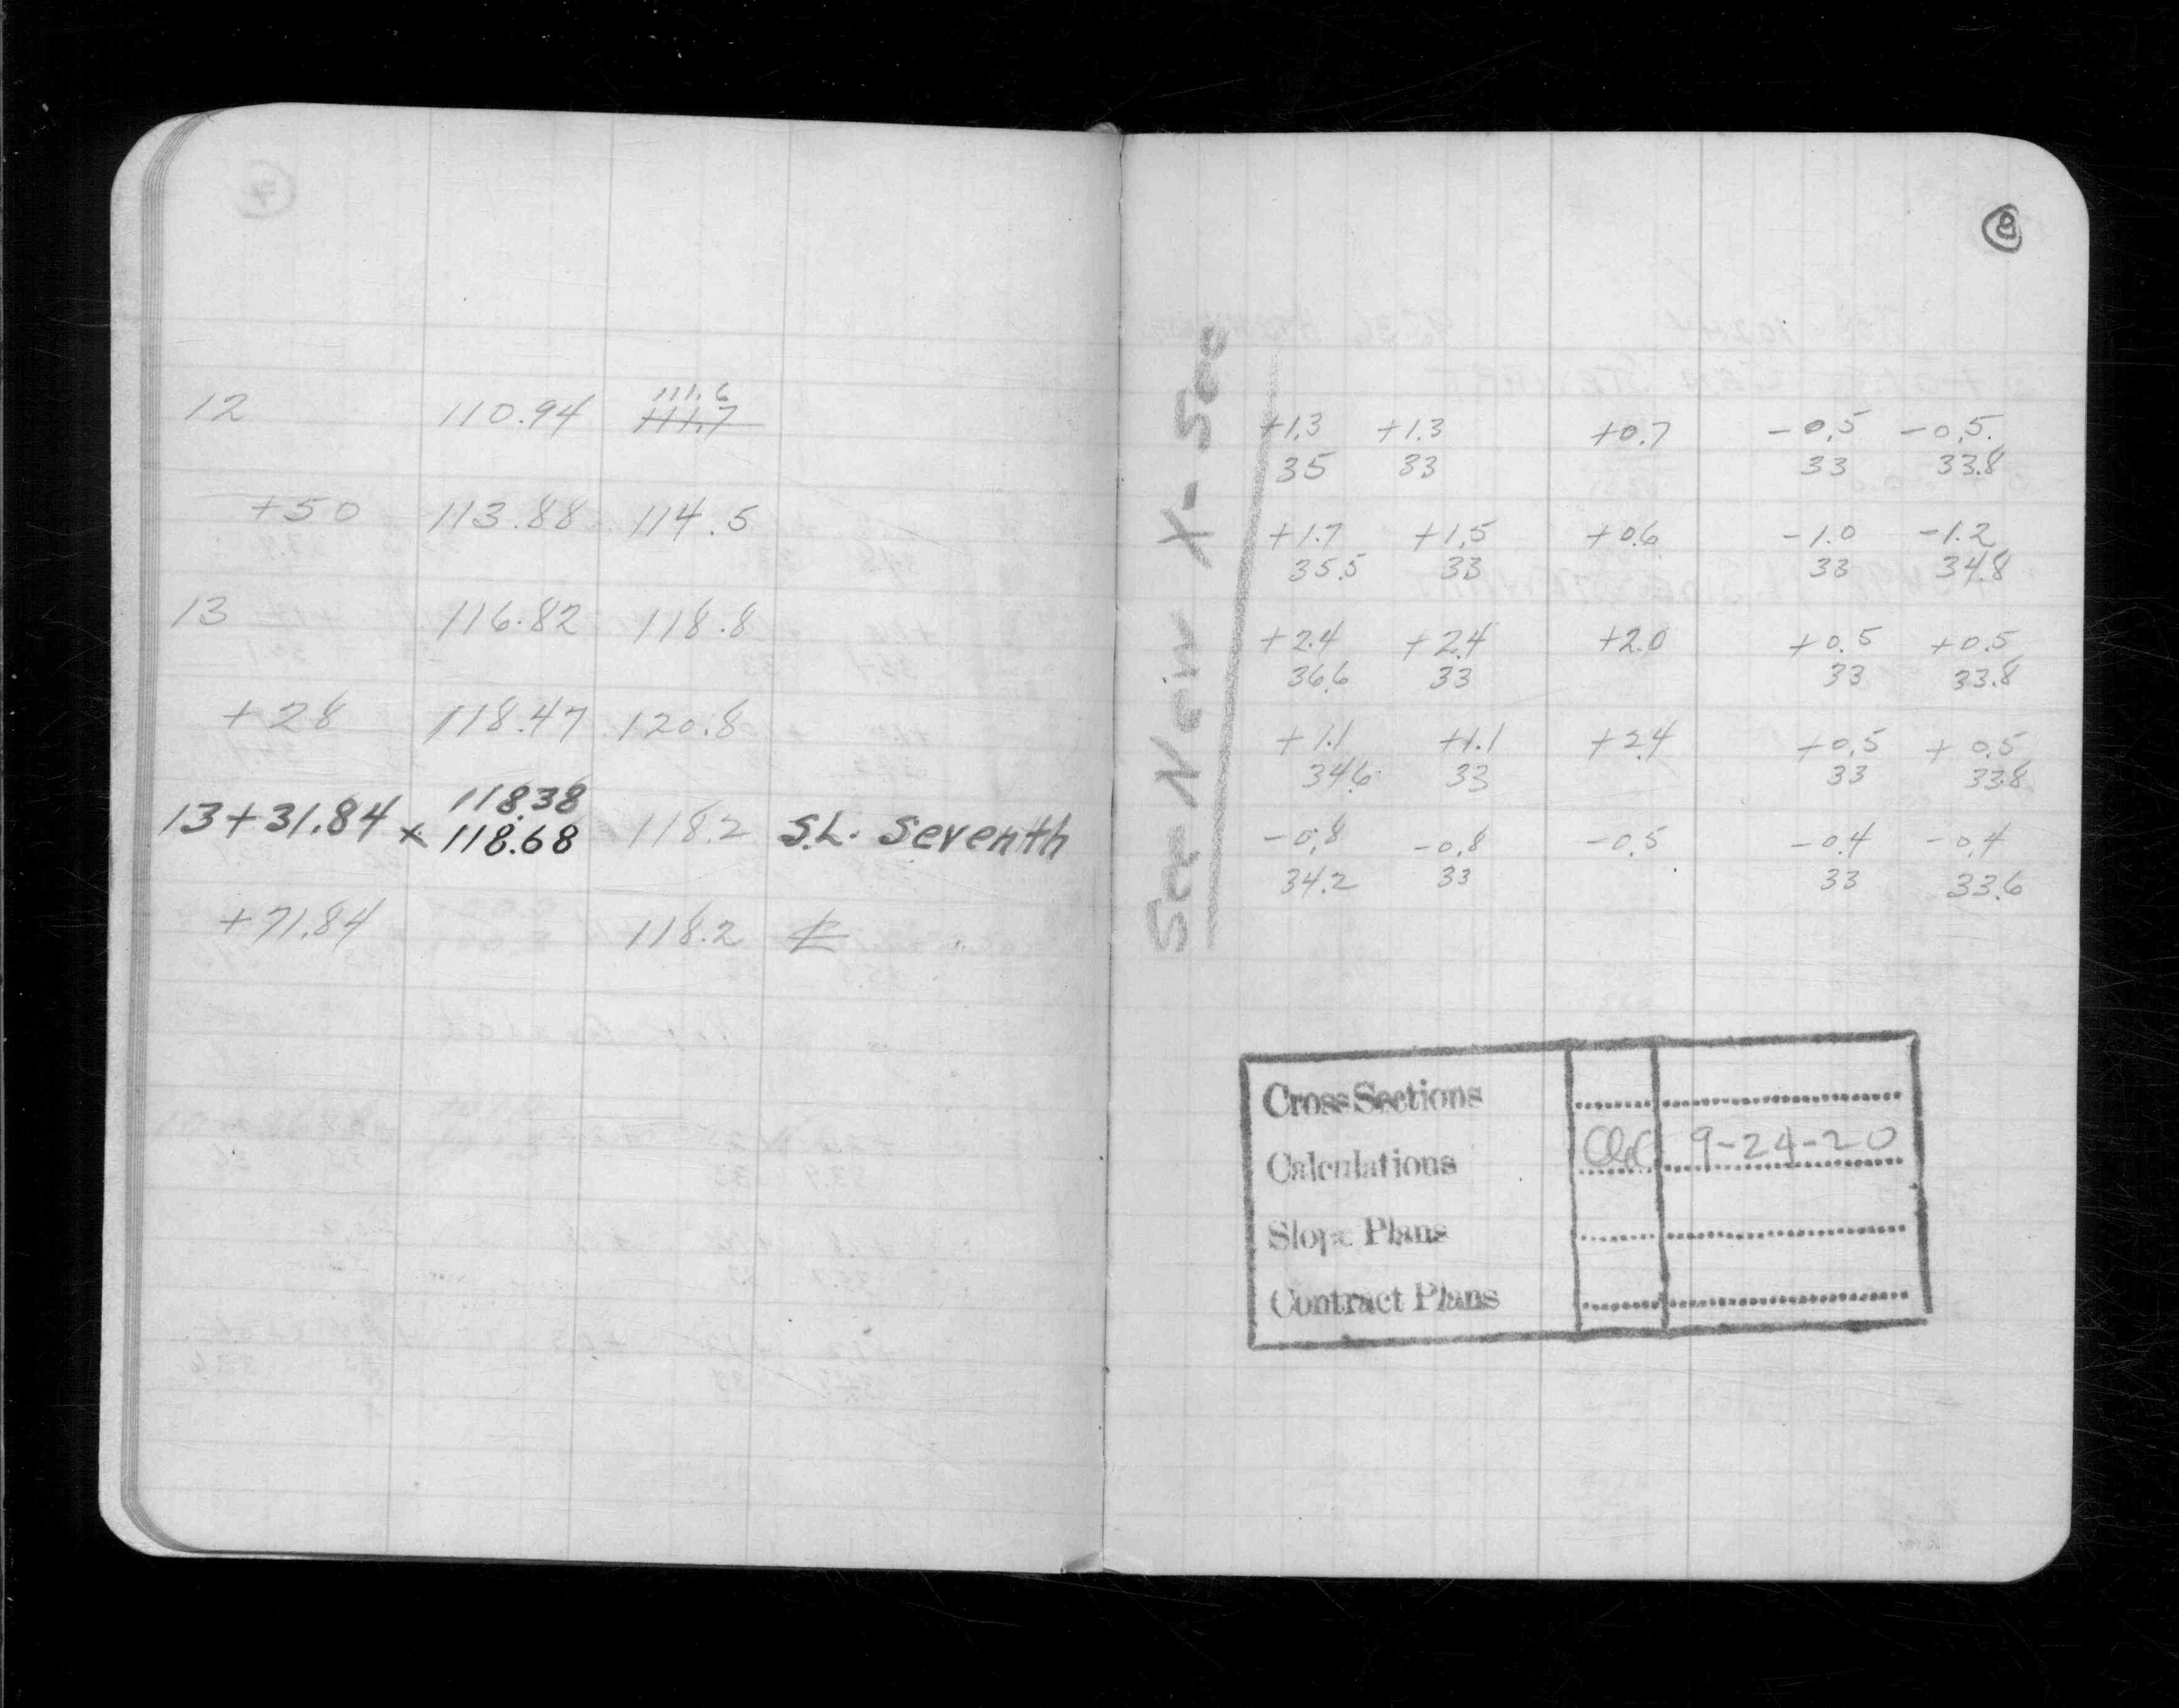 12 110.94 111.6
111.7
+50 113.88 114.5
13 116.82 118.8
+28 118.47 120.8
118.38
13+31.84 x 118.68 118.2 S.L. Seventh
+71.84 118.2 ℄ "
8
See New X-Sec
+1.3 +1.3 +0.7 -0.5 -0.5
35 33 33 33.8
+1.7 +1.5 +0.6 -1.0 -1.2
35.5 33 33 34.8
+2.4 +2.4 +2.0 +0.5 +0.5
36.6 33 33 33.8
+1.1 +1.1 +2.4 +0.5 +0.5
34.6 33 33 33.8
-0.8 -0.8 -0.5 -0.4 -0.4
34.2 33 33 33.6
Cross Sections
Calculations 9-24-20
Slope Plans
Contract Plans